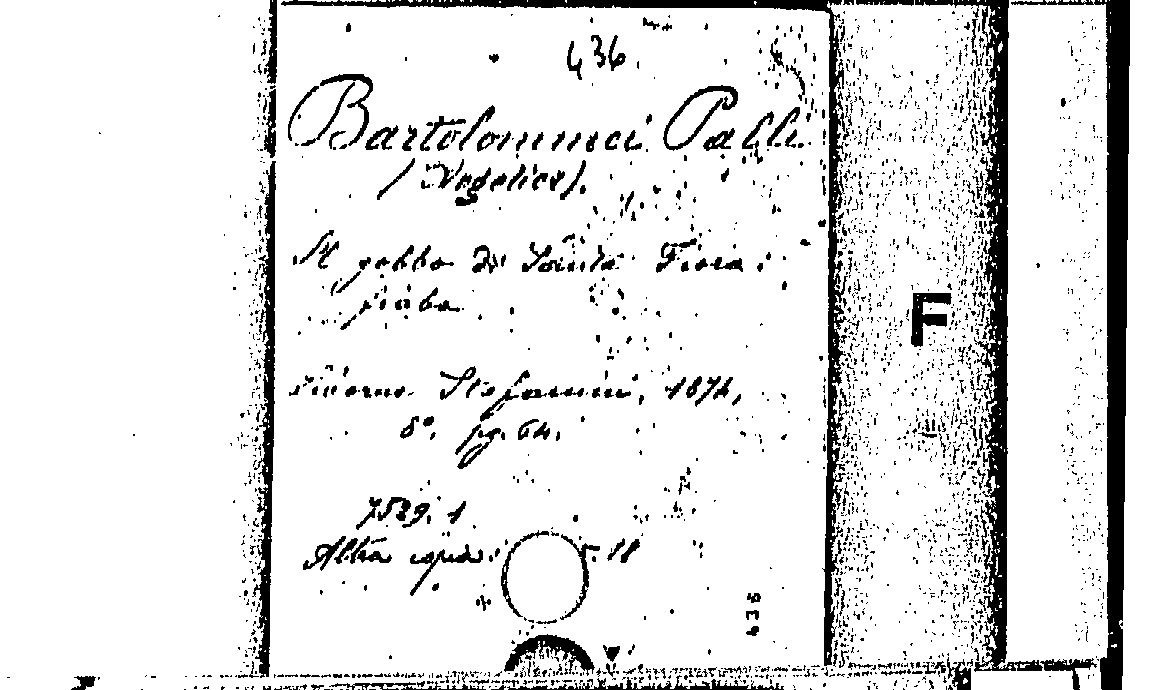 436.
Bartolommei Palli
(Angelica).
Il gobbo di Santa Fiora:
fiaba.
Livorno Stefanini, 1874,
8°. pg. 64.
7529. 1
Altra copia:
F
436